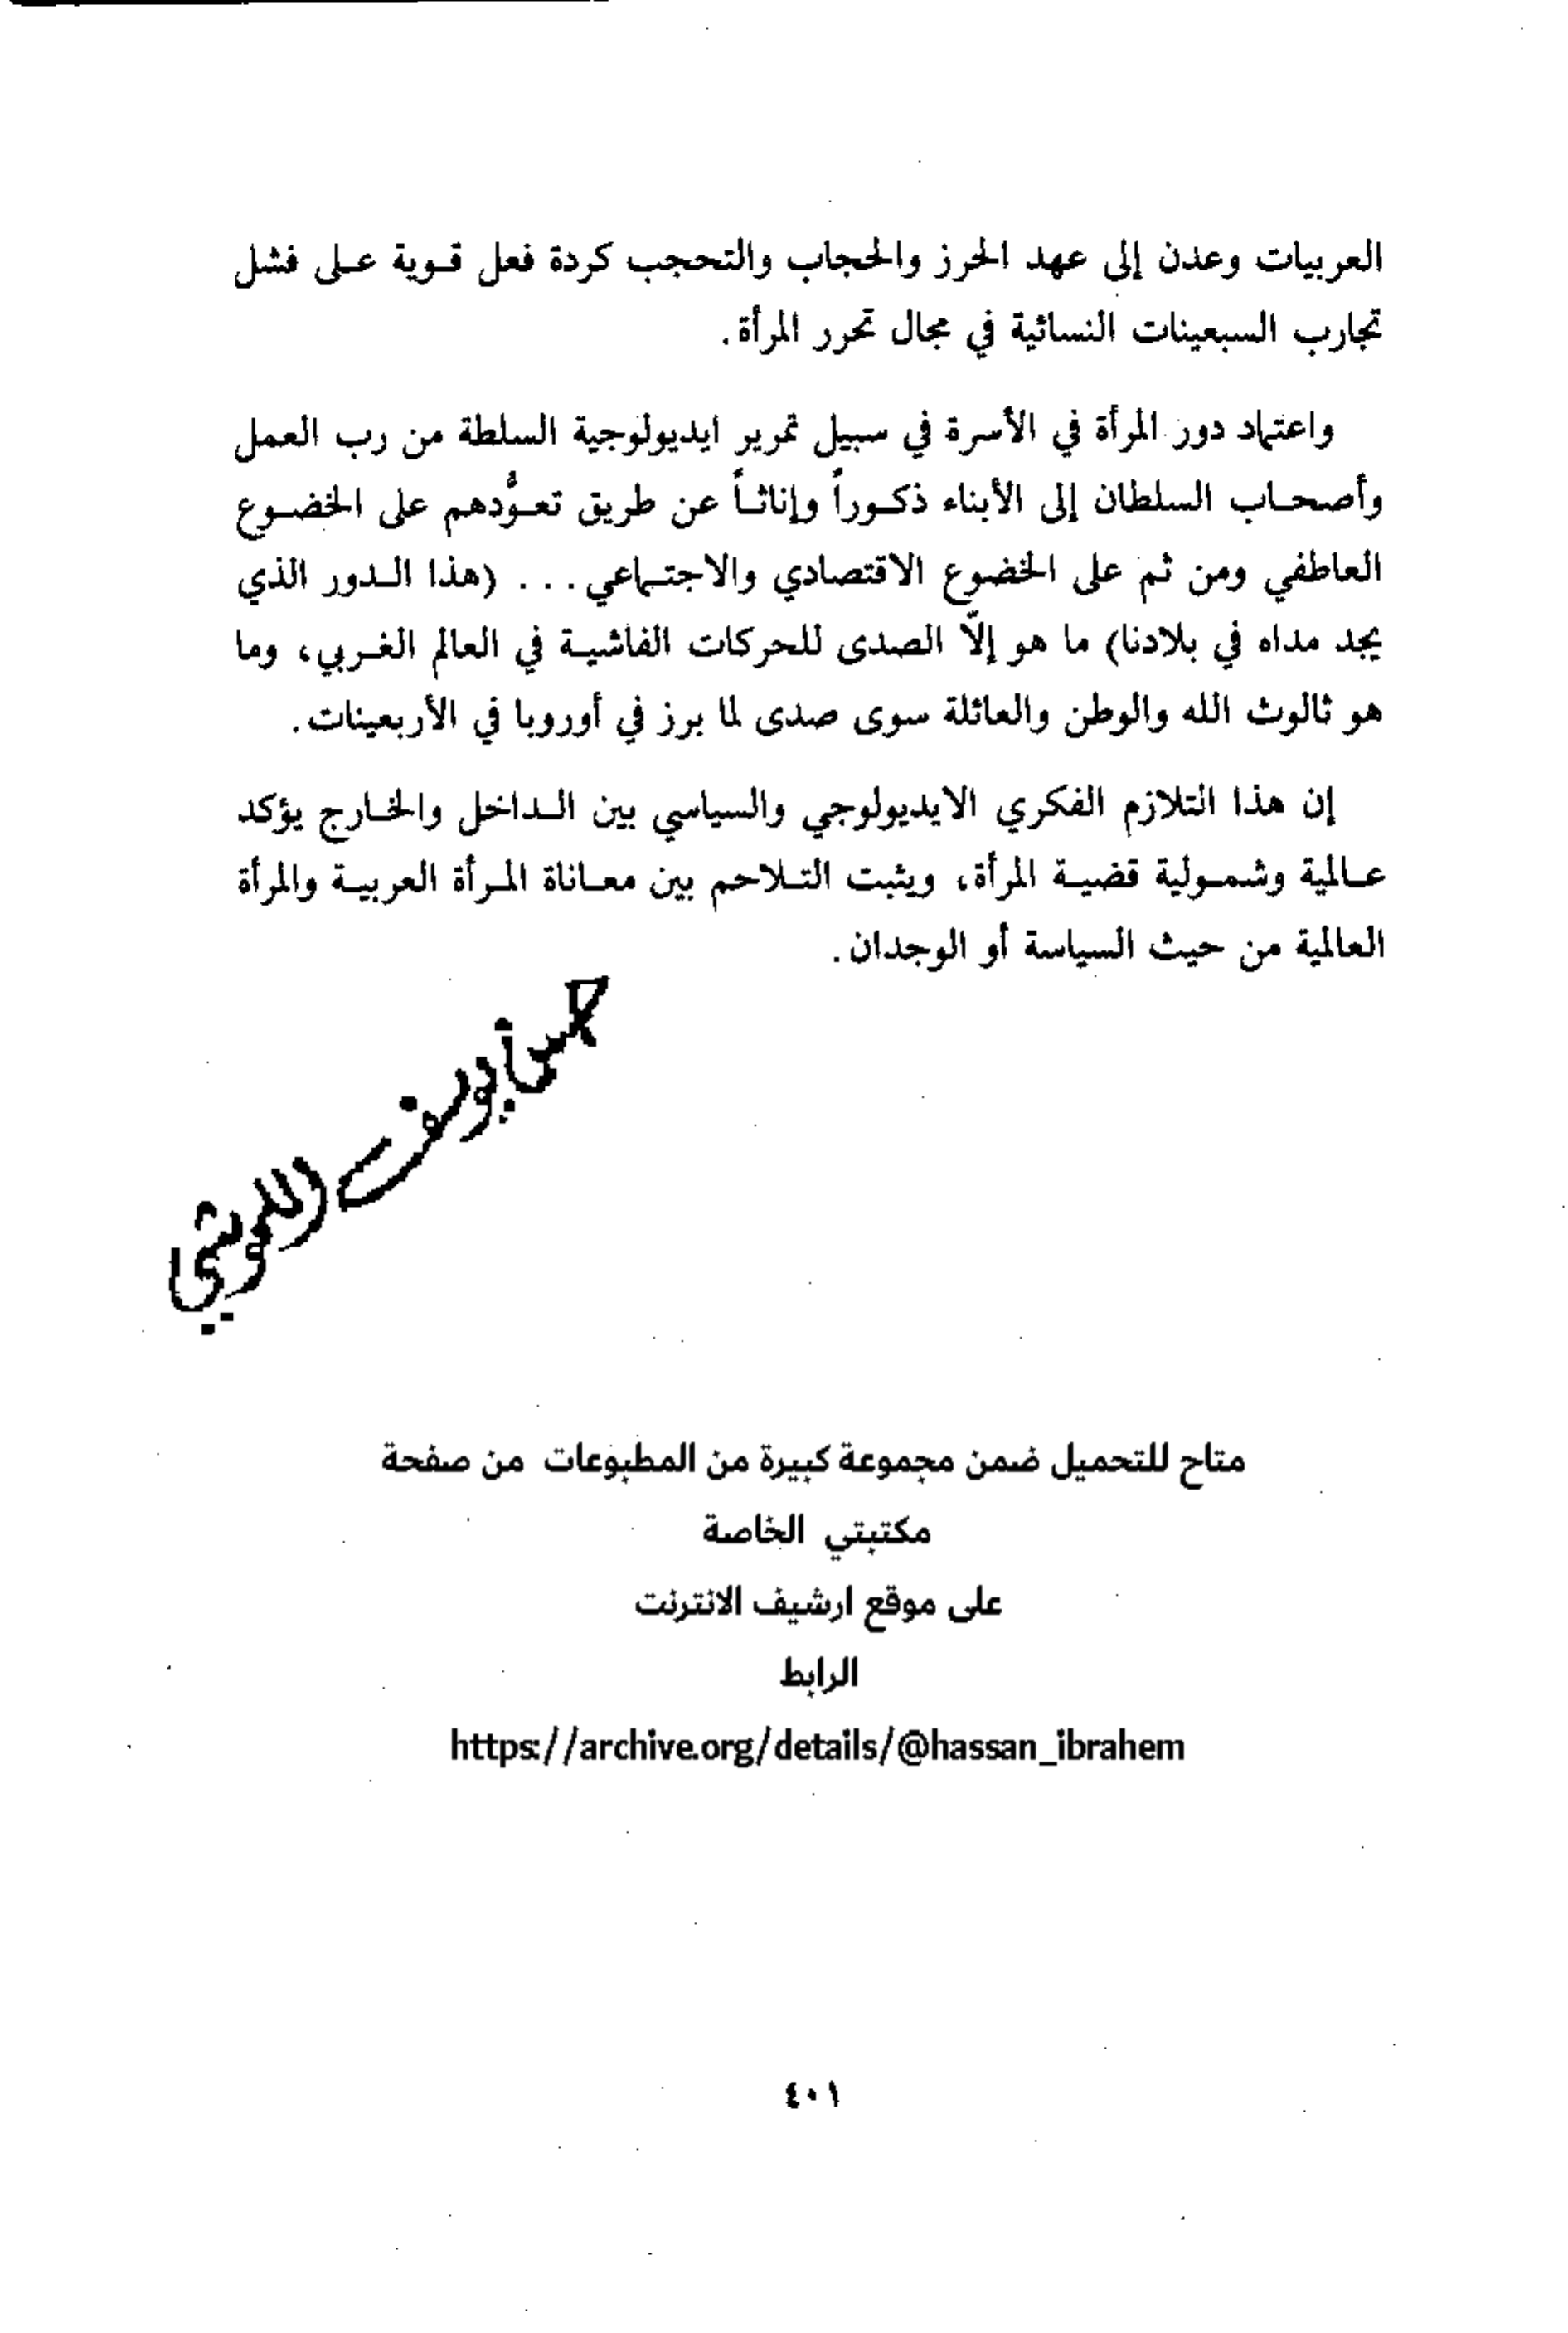 العربيات وعدن إلى عهد الحرز والحجاب والتحجب كردة فعل قوية على فشل
تجارب السبعينات النسائية في مجال تحرر المرأة.
واعتماد دور المرأة في الأسرة في سبيل تمرير ايديولوجية السلطة من رب العمل
وأصحاب السلطان إلى الأبناء ذكوراً وإناثاً عن طريق تعوُّدهم على الخضوع
العاطفي ومن ثم على الخضوع الاقتصادي والاجتماعي... (هذا الدور الذي
يجد مداه في بلادنا) ما هو إلاّ الصدى للحركات الفاشية في العالم الغربي، وما
هو ثالوث الله والوطن والعائلة سوى صدى لما برز في أوروبا في الأربعينات.
إن هذا التلازم الفكري الايديولوجي والسياسي بين الداخل والخارج يؤكد
عالمية وشمولية قضية المرأة، ويثبت التلاحم بين معاناة المرأة العربية والمرأة
العالمية من حيث السياسة أو الوجدان.
متاح للتحميل ضمن مجموعة كبيرة من المطبوعات من صفحة
مكتبتي الخاصة
على موقع ارشيف الانترنت
الرابط
https://archive.org/details/@hassan_ibrahem
٤٠١